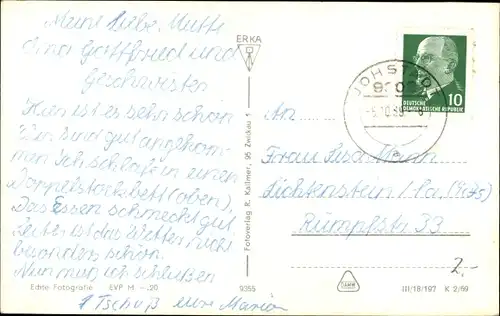 Meine liebe Mutti
Gottfried und
Geschwister
Hier ist es sehr schön
Wir sind gut angekom-
men Ich schlafe in einem
Doppelstockbett (oben).
Das Essen schmeckt gut
Leider ist das Wetter nicht
besonders schön.
Nun muß ich schließen
Tschüß eure Marion
Echte Fotografie EVP M -.20 9355
ERKA
Fotoverlag R. Kallmer, 95 Zwickau 5
JOHSTADT
DEUTSCHE
DEMOKRATISCHE REPUBLIK 10
An
Frau
Lichtenstein/Sa.
Rümpfstr. 33
2.-
III/18/197 K 2/69